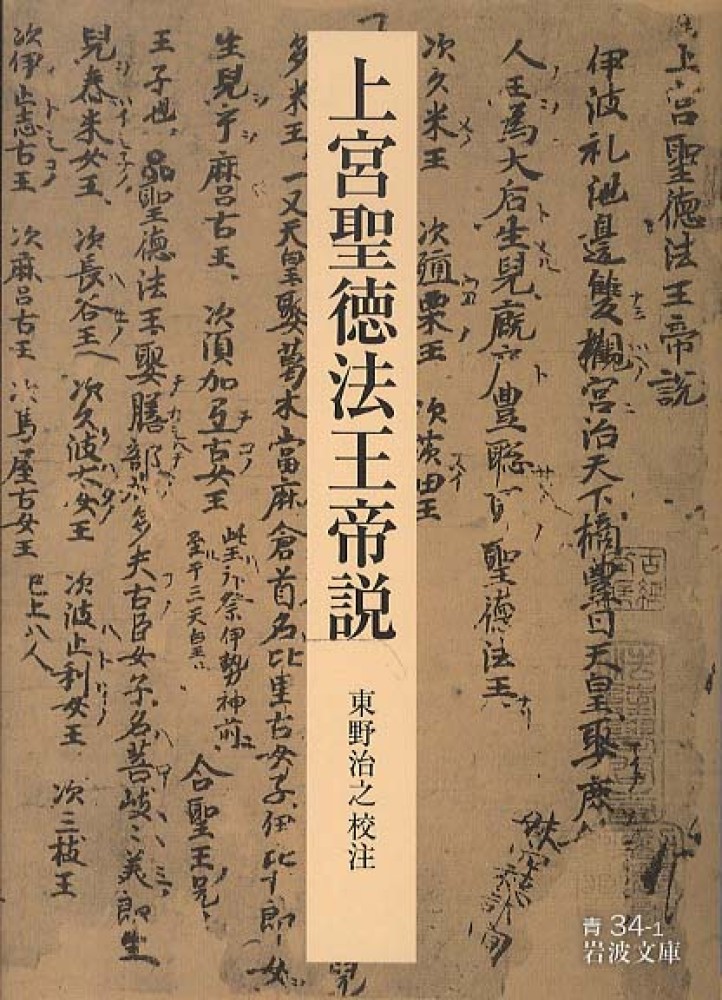 上宮聖徳法王帝説
東野治之校注
青 34-1
岩波文庫
上宮聖徳法王帝説
伊波礼池邊雙槻宮治天下橘豊日天皇娶庶
人王為大后生兒厩戸豊聡耳聖徳法王
次久米王 次殖栗王 次茨田王
多米王一又天皇娶葛木當麻倉首名比里古女子伊比古郎女
生兒乎麻呂古王 次須加弖古女王
此王拝祭伊勢神前
至于三天皇
合聖王兄
王子也 聖徳法王娶膳部加多夫古臣女子名菩岐々美郎生
兒舂米女王 次長谷王 次久波太女王 次波止利女王 次三枝王
次伊止志古王 次麻呂古王 次馬屋古女王 已上八人